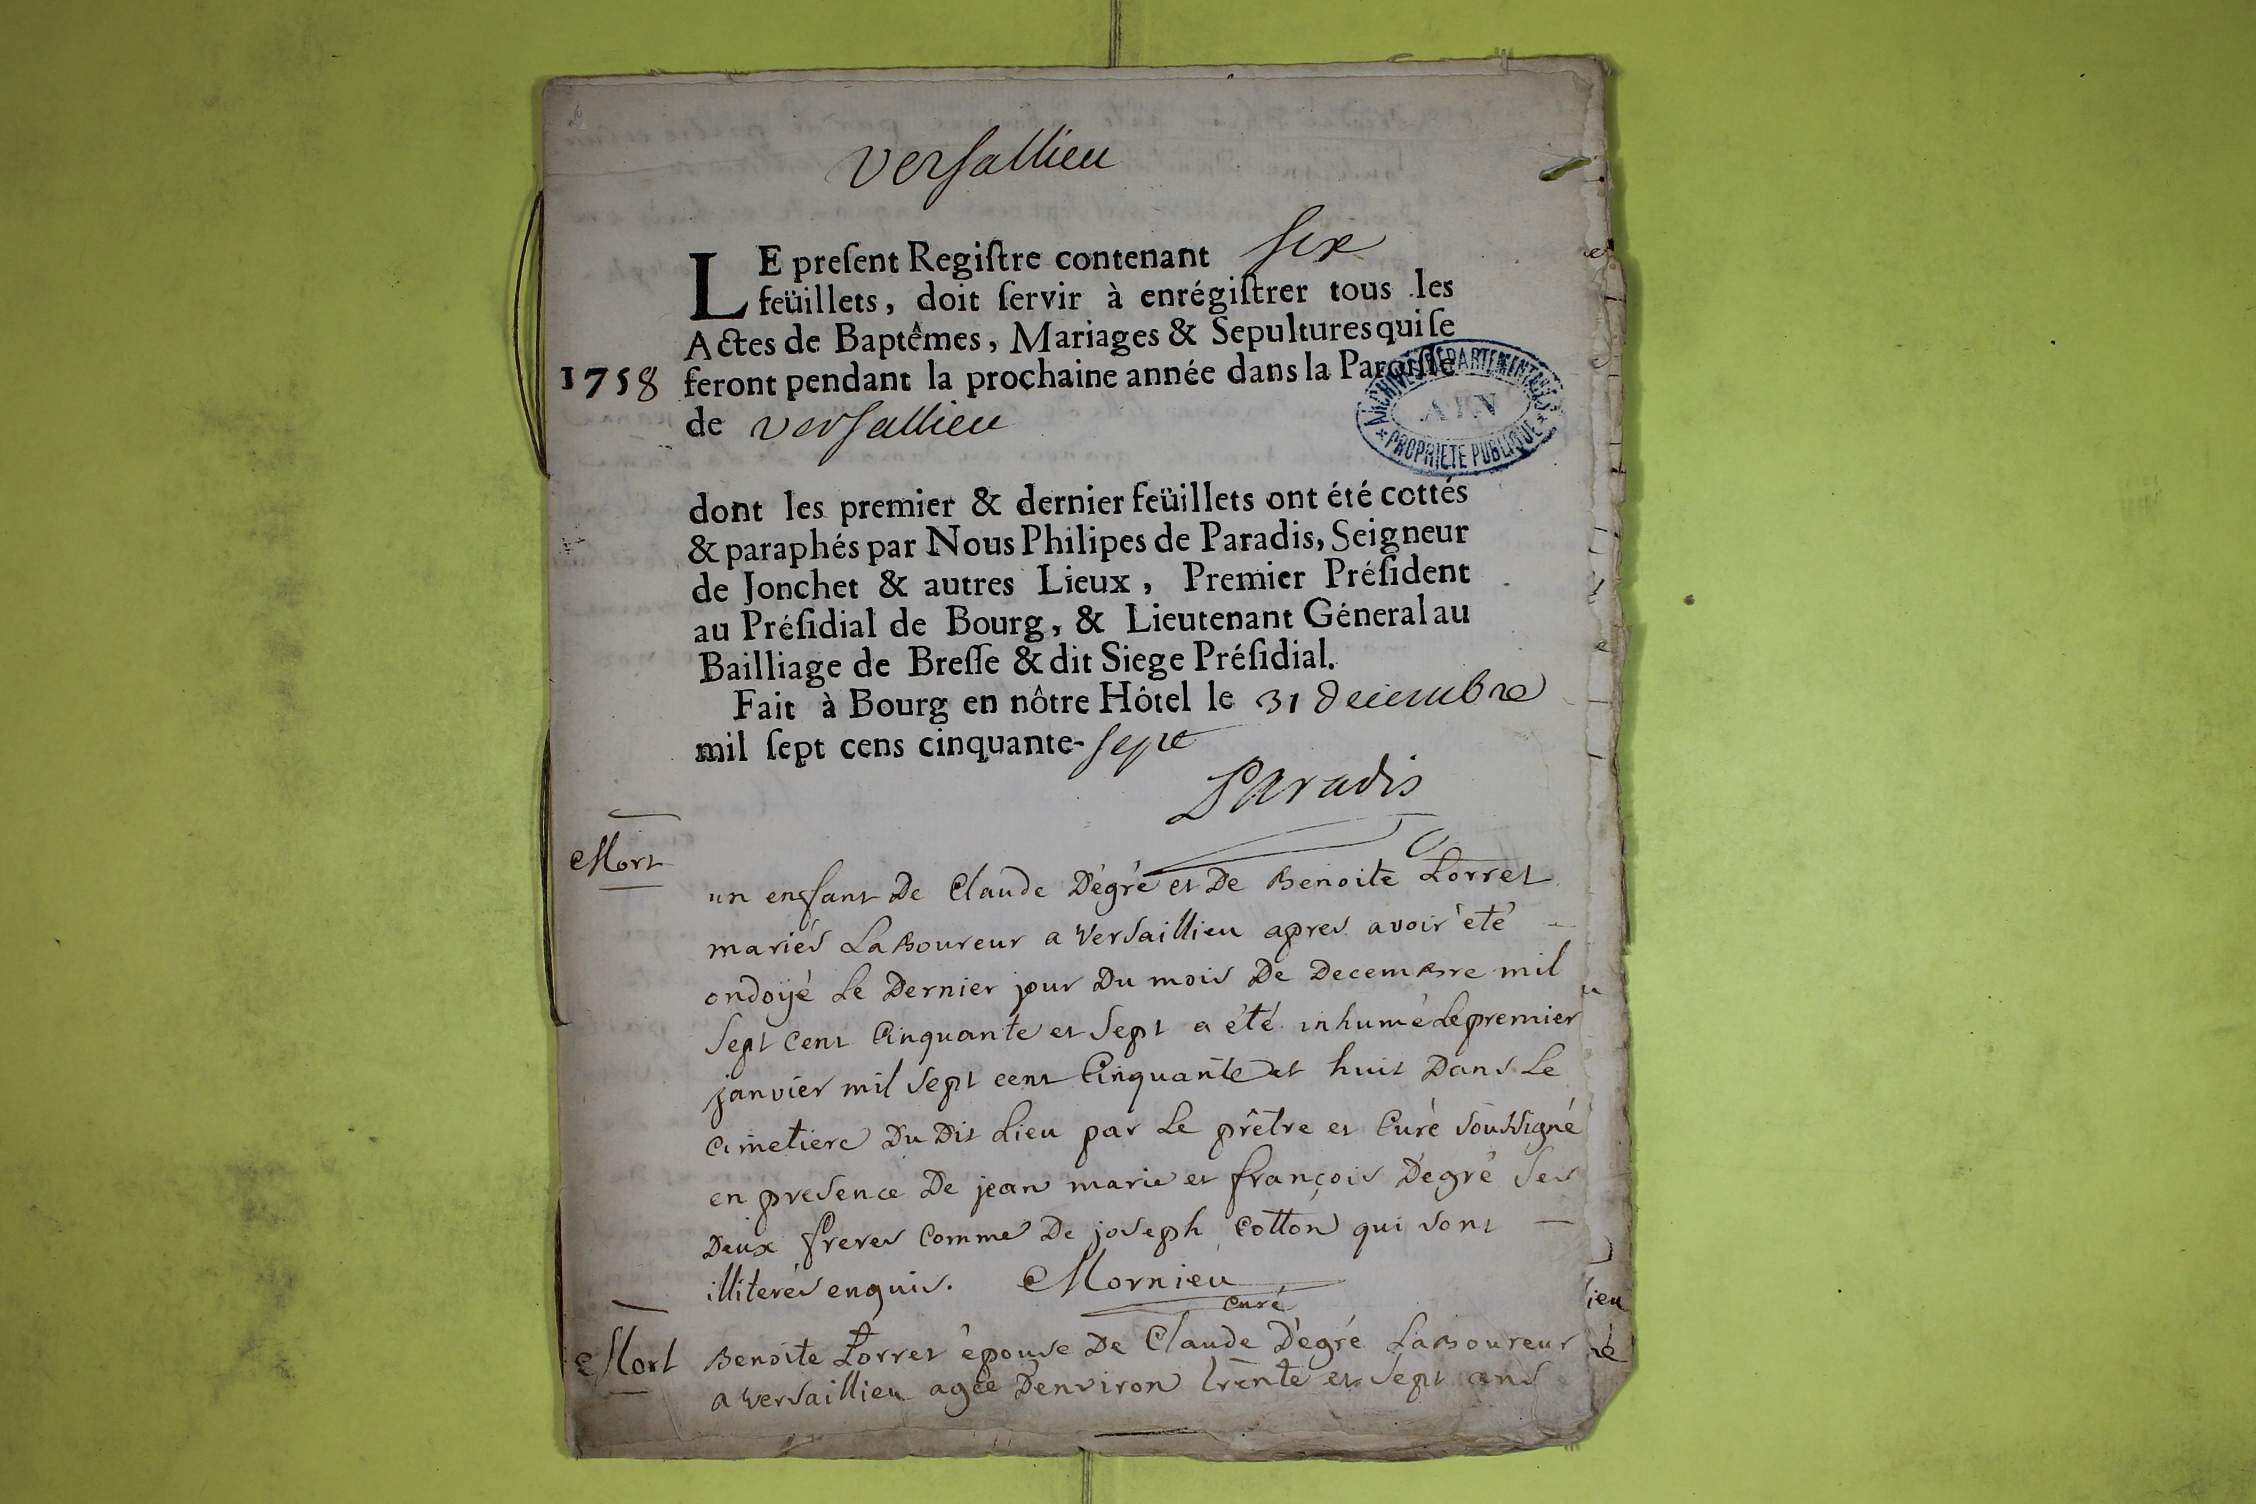 Versallieu
LE preſent Regiſtre contenant six
feüillets, doit ſervir à enrégiſtrer tous les
Actes de Baptêmes, Mariages & Sepultures qui ſe
1758 feront pendant la prochaine année dans la Paroiſſe
de Versallieu
ARCHIVES DEPARTEMENTALES
AIN
PROPRIETE PUBLIQUE
dont les premier & dernier feüillets ont été cottés
& paraphés par Nous Philipes de Paradis, Seigneur
de Jonchet & autres Lieux, Premier Préſident
au Préſidial de Bourg, & Lieutenant Géneral au
Bailliage de Breſſe & dit Siege Préſidial.
Fait à Bourg en nôtre Hôtel le 31 decembre
mil ſept cens cinquante-sept
Paradis
Mort
un enfant De Claude Dégré et De Benoite Lorret
mariés Laboureur a Versaillieu apres avoir été
ondoÿé Le Dernier jour Du mois De Decembre mil
Sept Cent Cinquante et Sept a été inhumé Le premier
janvier mil Sept cent Cinquante et huit Dans Le
Cimetiere Du Dit Lieu par Le prêtre et Curé Soussigné
en presence De jean marie et françois Dégré Ses
Deux freres Comme De joseph Cotton qui sont
illiterés enquis. Mornieu
curé
Mort Benoite Lorret épouse De Claude Dégré Laboureur
a Versaillieu agée Denviron trente et Sept ans